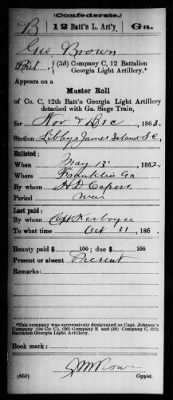 (Confederate.)
B 12 Batt'n L. Art'y. Ga.
Geo Brown
Pvt., (3d) Company C, 12 Battalion
Georgia Light Artillery.*
Appears on a
Muster Roll
of Co. C, 12th Batt'n Georgia Light Artillery
detached with Ga. Siege Train,
for Nov & Dec , 1863.
Station James Island S.C.
Enlisted:
When May 13 , 1862.
Where Ga
By whom H D Capers
Period War
Last paid:
By whom Capt
To what time Oct 31 , 186 .
Bounty paid $ 100; due $ 100
Present or absent Present
Remarks:
*This company was successively designated as Capt. Johnson's
Company (2d Co. C), (3d) Company E and (3d) Company C, 12th
Battalion Georgia Light Artillery.
Book mark:
(650) Copyist.